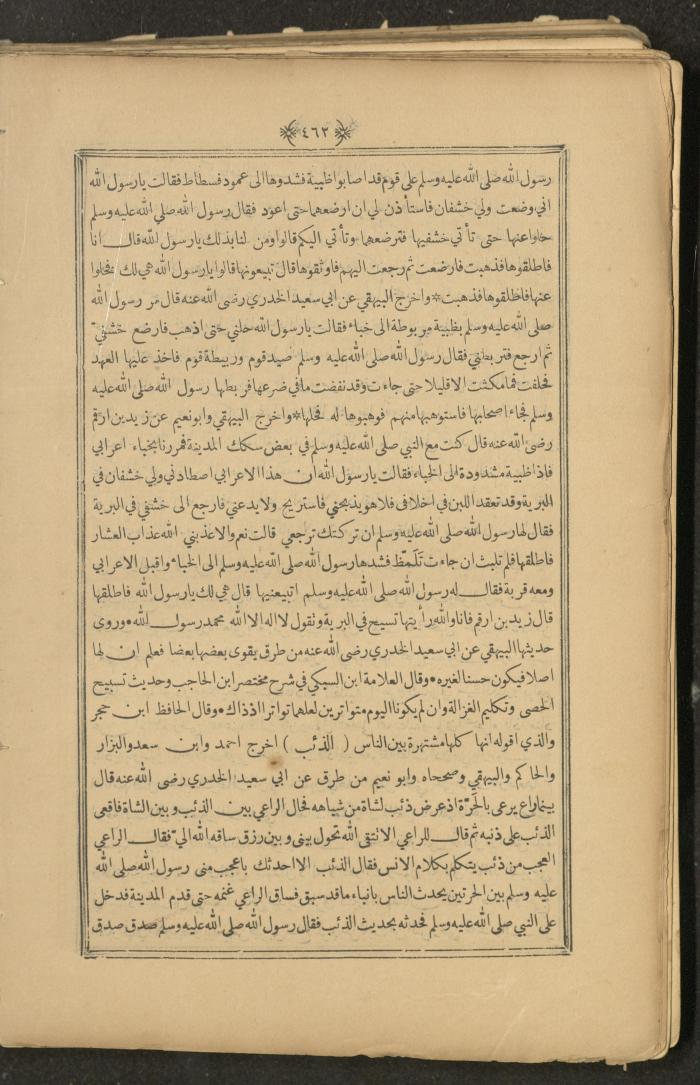 ٤٦٢
رسول الله صلى الله عليه وسلم على قوم قد اصابوا ظبية فشدوها الى عمود فسطاط فقالت يا رسول الله
اني وضعت ولي خشفان فاستأذن لي ان ارضعهما حتى اعود فقال رسول الله صلى الله عليه وسلم
خلوا عنها حتى تأتي خشفيها فترضعهما وتأتي اليكم قالوا ومن لنا بذلك يا رسول الله قال انا
فاطلقوها فذهبت فارضعت ثم رجعت اليهم فاوثقوها قال تبيعونها قالوا يا رسول الله هي لك فخلوا
عنها فاطلقوها فذهبت * واخرج البيهقي عن ابي سعيد الخدري رضى الله عنه قال مر رسول الله
صلى الله عليه وسلم بظبية مربوطة الى خباء فقالت يا رسول الله حلني حتى اذهب فارضع خشفيّ
ثم ارجع فتربطني فقال رسول الله صلى الله عليه وسلم صيد قوم وربيطة قوم فاخذ عليها العهد
فحلفت فما مكثت الا قليلا حتى جاءت وقد نفضت ما في ضرعها فربطها رسول الله صلى الله عليه
وسلم فجاء اصحابها فاستوهبها منهم فوهبوها له فحلها * واخرج البيهقي وابو نعيم عن زيد بن ارقم
رضى الله عنه قال كنت مع النبي صلى الله عليه وسلم في بعض سكك المدينة فمررنا بخباء اعرابي
فاذا ظبية مشدودة الى الخباء فقالت يا رسول الله ان هذا الاعرابي اصطادني ولي خشفان في
البرية وقد تعقد اللبن في اخلافى فلا هو يذبحني فاستريح ولا يدعني فارجع الى خشفي في البرية
فقال لها رسول الله صلى الله عليه وسلم ان تركتك ترجعي قالت نعم والا عذبني الله عذاب العشار
فاطلقها فلم تلبث ان جاءت تلمظ فشدها رسول الله صلى الله عليه وسلم الى الخباء واقبل الاعرابي
ومعه قربة فقال له رسول الله صلى الله عليه وسلم اتبيعنيها قال هي لك يا رسول الله فاطلقها
قال زيد بن ارقم فانا والله رأيتها تسيح في البرية وتقول لا اله الا الله محمد رسول الله • وروى
حديثها البيهقي عن ابي سعيد الخدري رضى الله عنه من طرق يقوى بعضها بعضا فعلم ان لها
اصلا فيكون حسنا لغيره • وقال العلامة ابن السبكي في شرح مختصر ابن الحاجب وحديث تسبيح
الحصى وتكليم الغزالة وان لم يكونا اليوم متواترين لعلهما تواترا اذ ذاك • وقال الحافظ ابن حجر
والذي اقوله انها كلها مشتهرة بين الناس ( الذئب ) اخرج احمد وابن سعد والبزار
والحاكم والبيهقي وصححاه وابو نعيم من طرق عن ابي سعيد الخدري رضى الله عنه قال
بينما راع يرعى بالحَرّة اذ عرض ذئب لشاة من شياهه فحال الراعي بين الذئب وبين الشاة فاقعى
الذئب على ذنبه ثم قال للراعي الا تتقى الله تحول بيني وبين رزق ساقه الله اليّ فقال الراعي
العجب من ذئب يتكلم بكلام الانس فقال الذئب الا احدثك باعجب منى رسول الله صلى الله
عليه وسلم بين الحرتين يحدث الناس بانباء ما قد سبق فساق الراعي غنمه حتى قدم المدينة فدخل
على النبي صلى الله عليه وسلم فحدثه بحديث الذئب فقال رسول الله صلى الله عليه وسلم صدق صدق